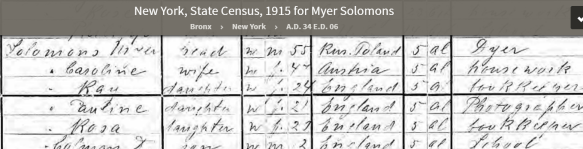 New York, State Census, 1915 for Myer Solomons
Bronx › New York › A.D. 34 E.D. 06
Solomons Myer head w m 55 Rus. Poland 5 al Dyer
" Caroline wife w f 47 Austria 5 al housework
" Ray daughter w f 24 England 5 al bookkeeper
" Pauline daughter w f 21 England 5 al Photographer
" Rosa daughter w f 23 England 5 al bookkeeper
son w m 2 England 5 al School